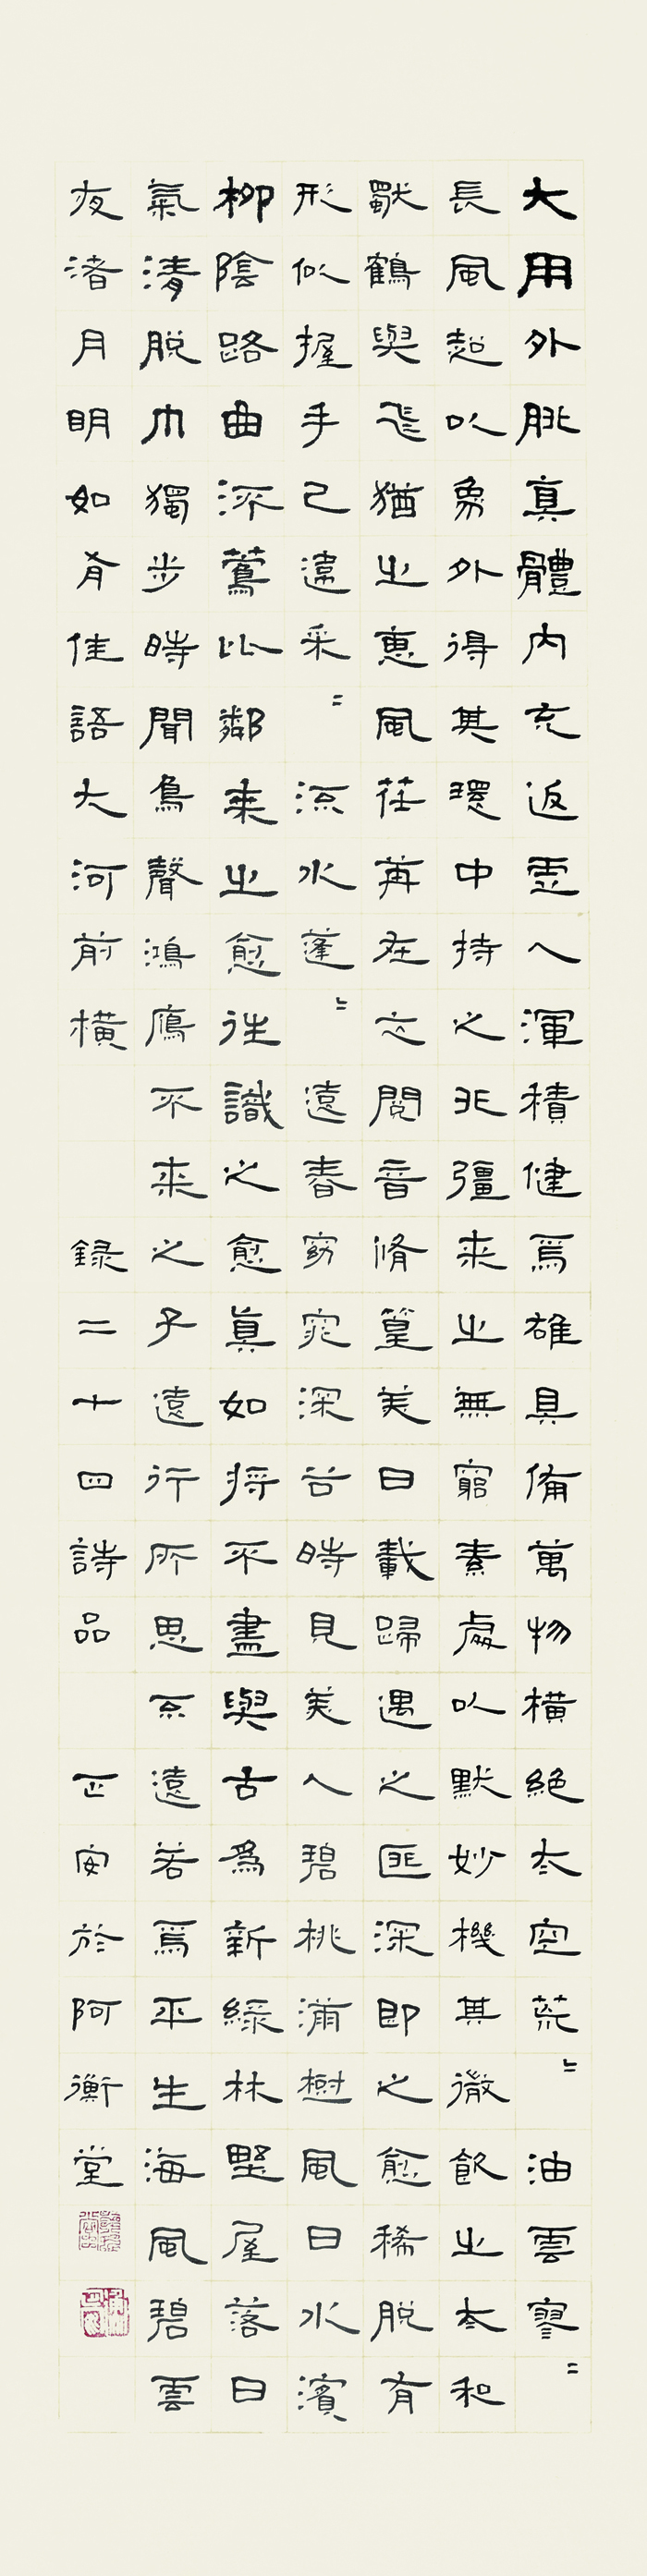 大用外腓真體內充返虛入渾積健為雄具備萬物橫絕太空荒〻油雲寥〻
長風超以象外得其環中持之非彊來之無窮素處以默妙機其微飲之太和
獨鶴與飛猶之惠風荏苒在衣閱音脩篁美曰載歸遇之匪深即之愈稀脫有
形似握手已違采〻流水蓬〻遠春窈窕深谷時見美人碧桃滿樹風日水濱
柳陰路曲流鶯比鄰乘之愈往識之愈真如將不盡與古為新綠林野屋落日
氣清脫巾獨步時聞鳥聲鴻鴈不來之子遠行所思不遠若為平生海風碧雲
夜渚月明如有佳語大河前橫
錄二十四詩品
正安於阿衡堂